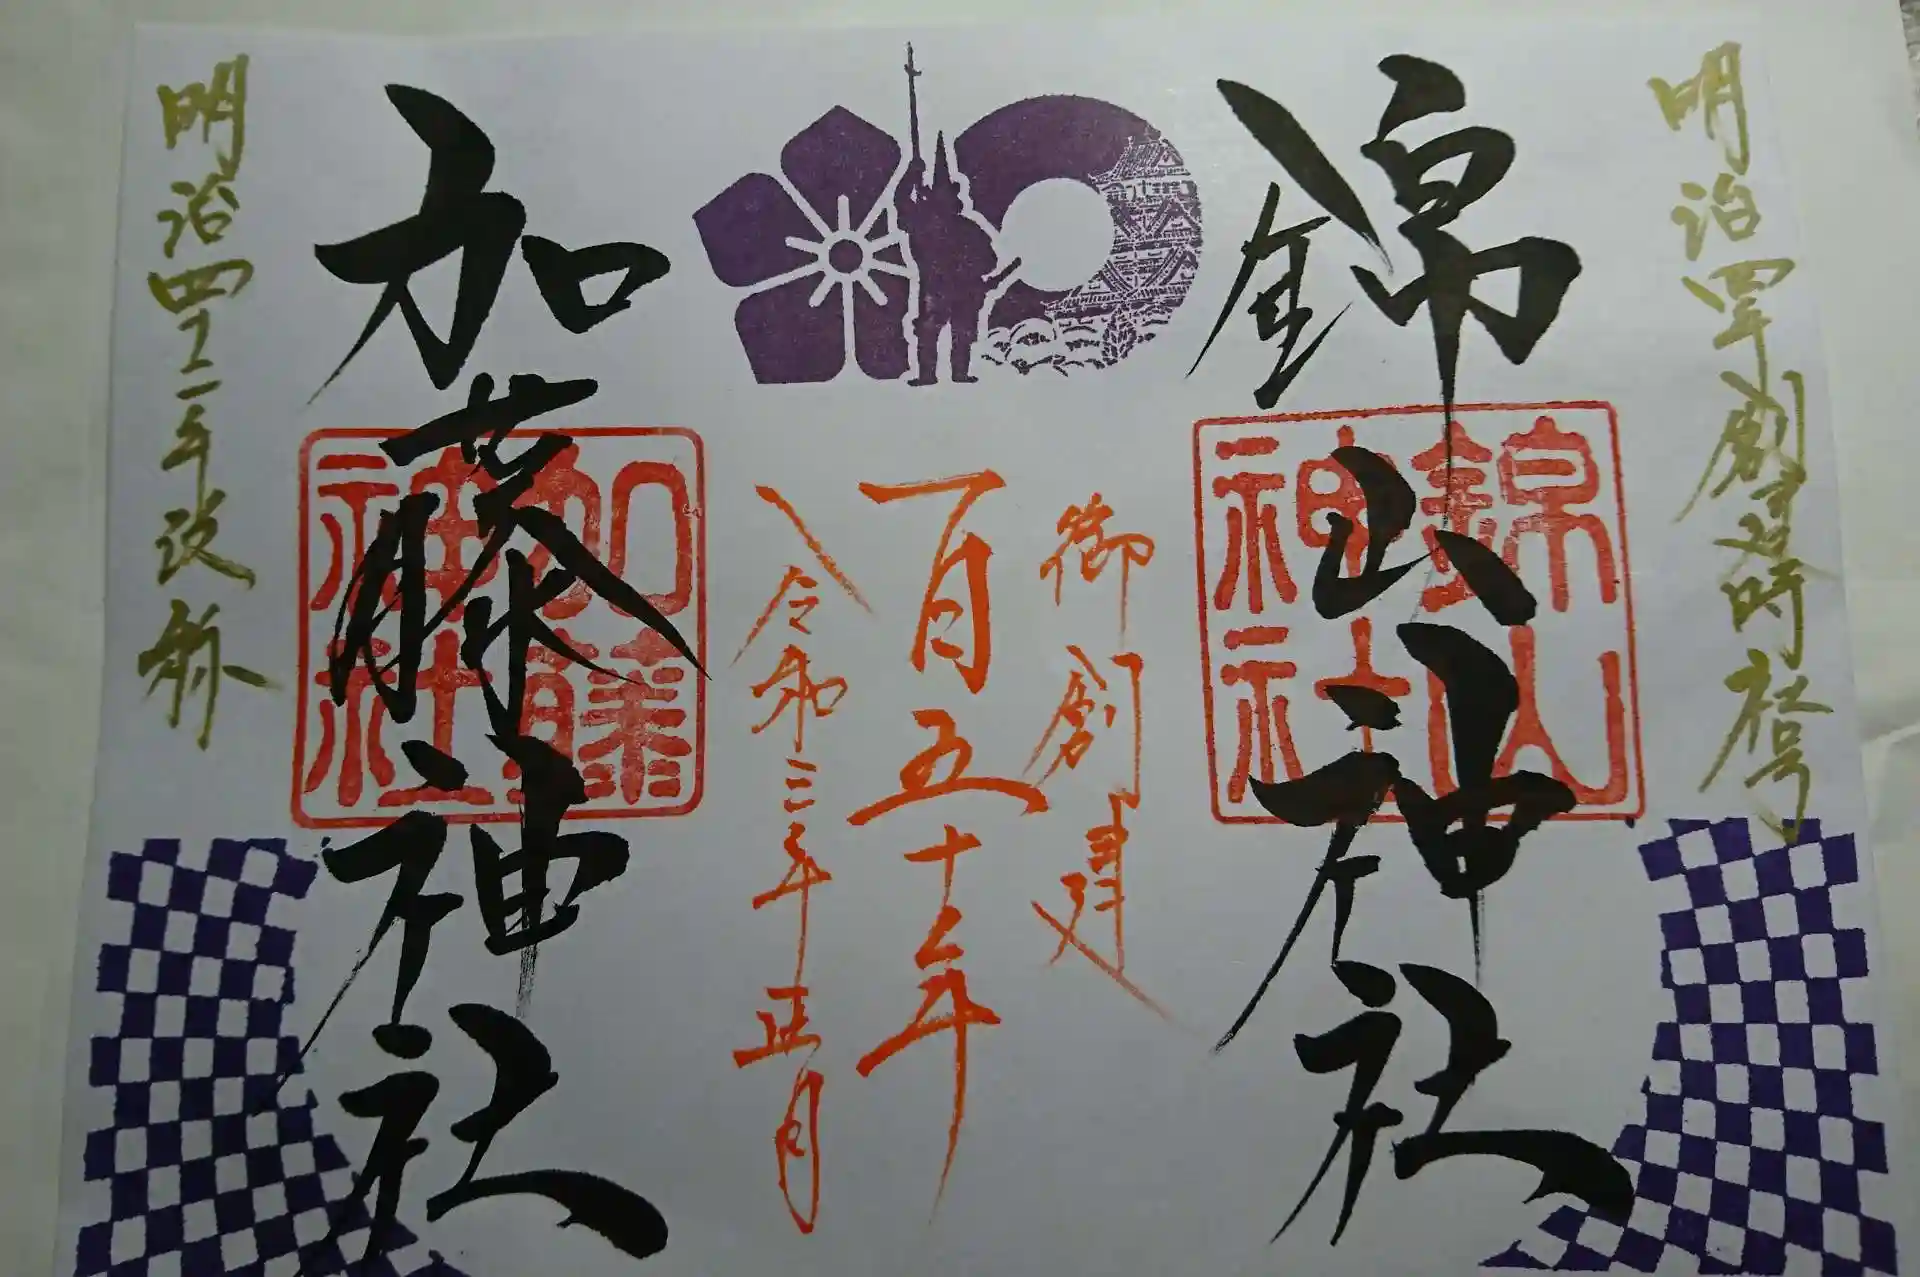 明治四年創建時社号
錦山神社
錦山神社
御創建
百五十年
令和三年正月
加藤神社
加藤神社
明治四十二年改称